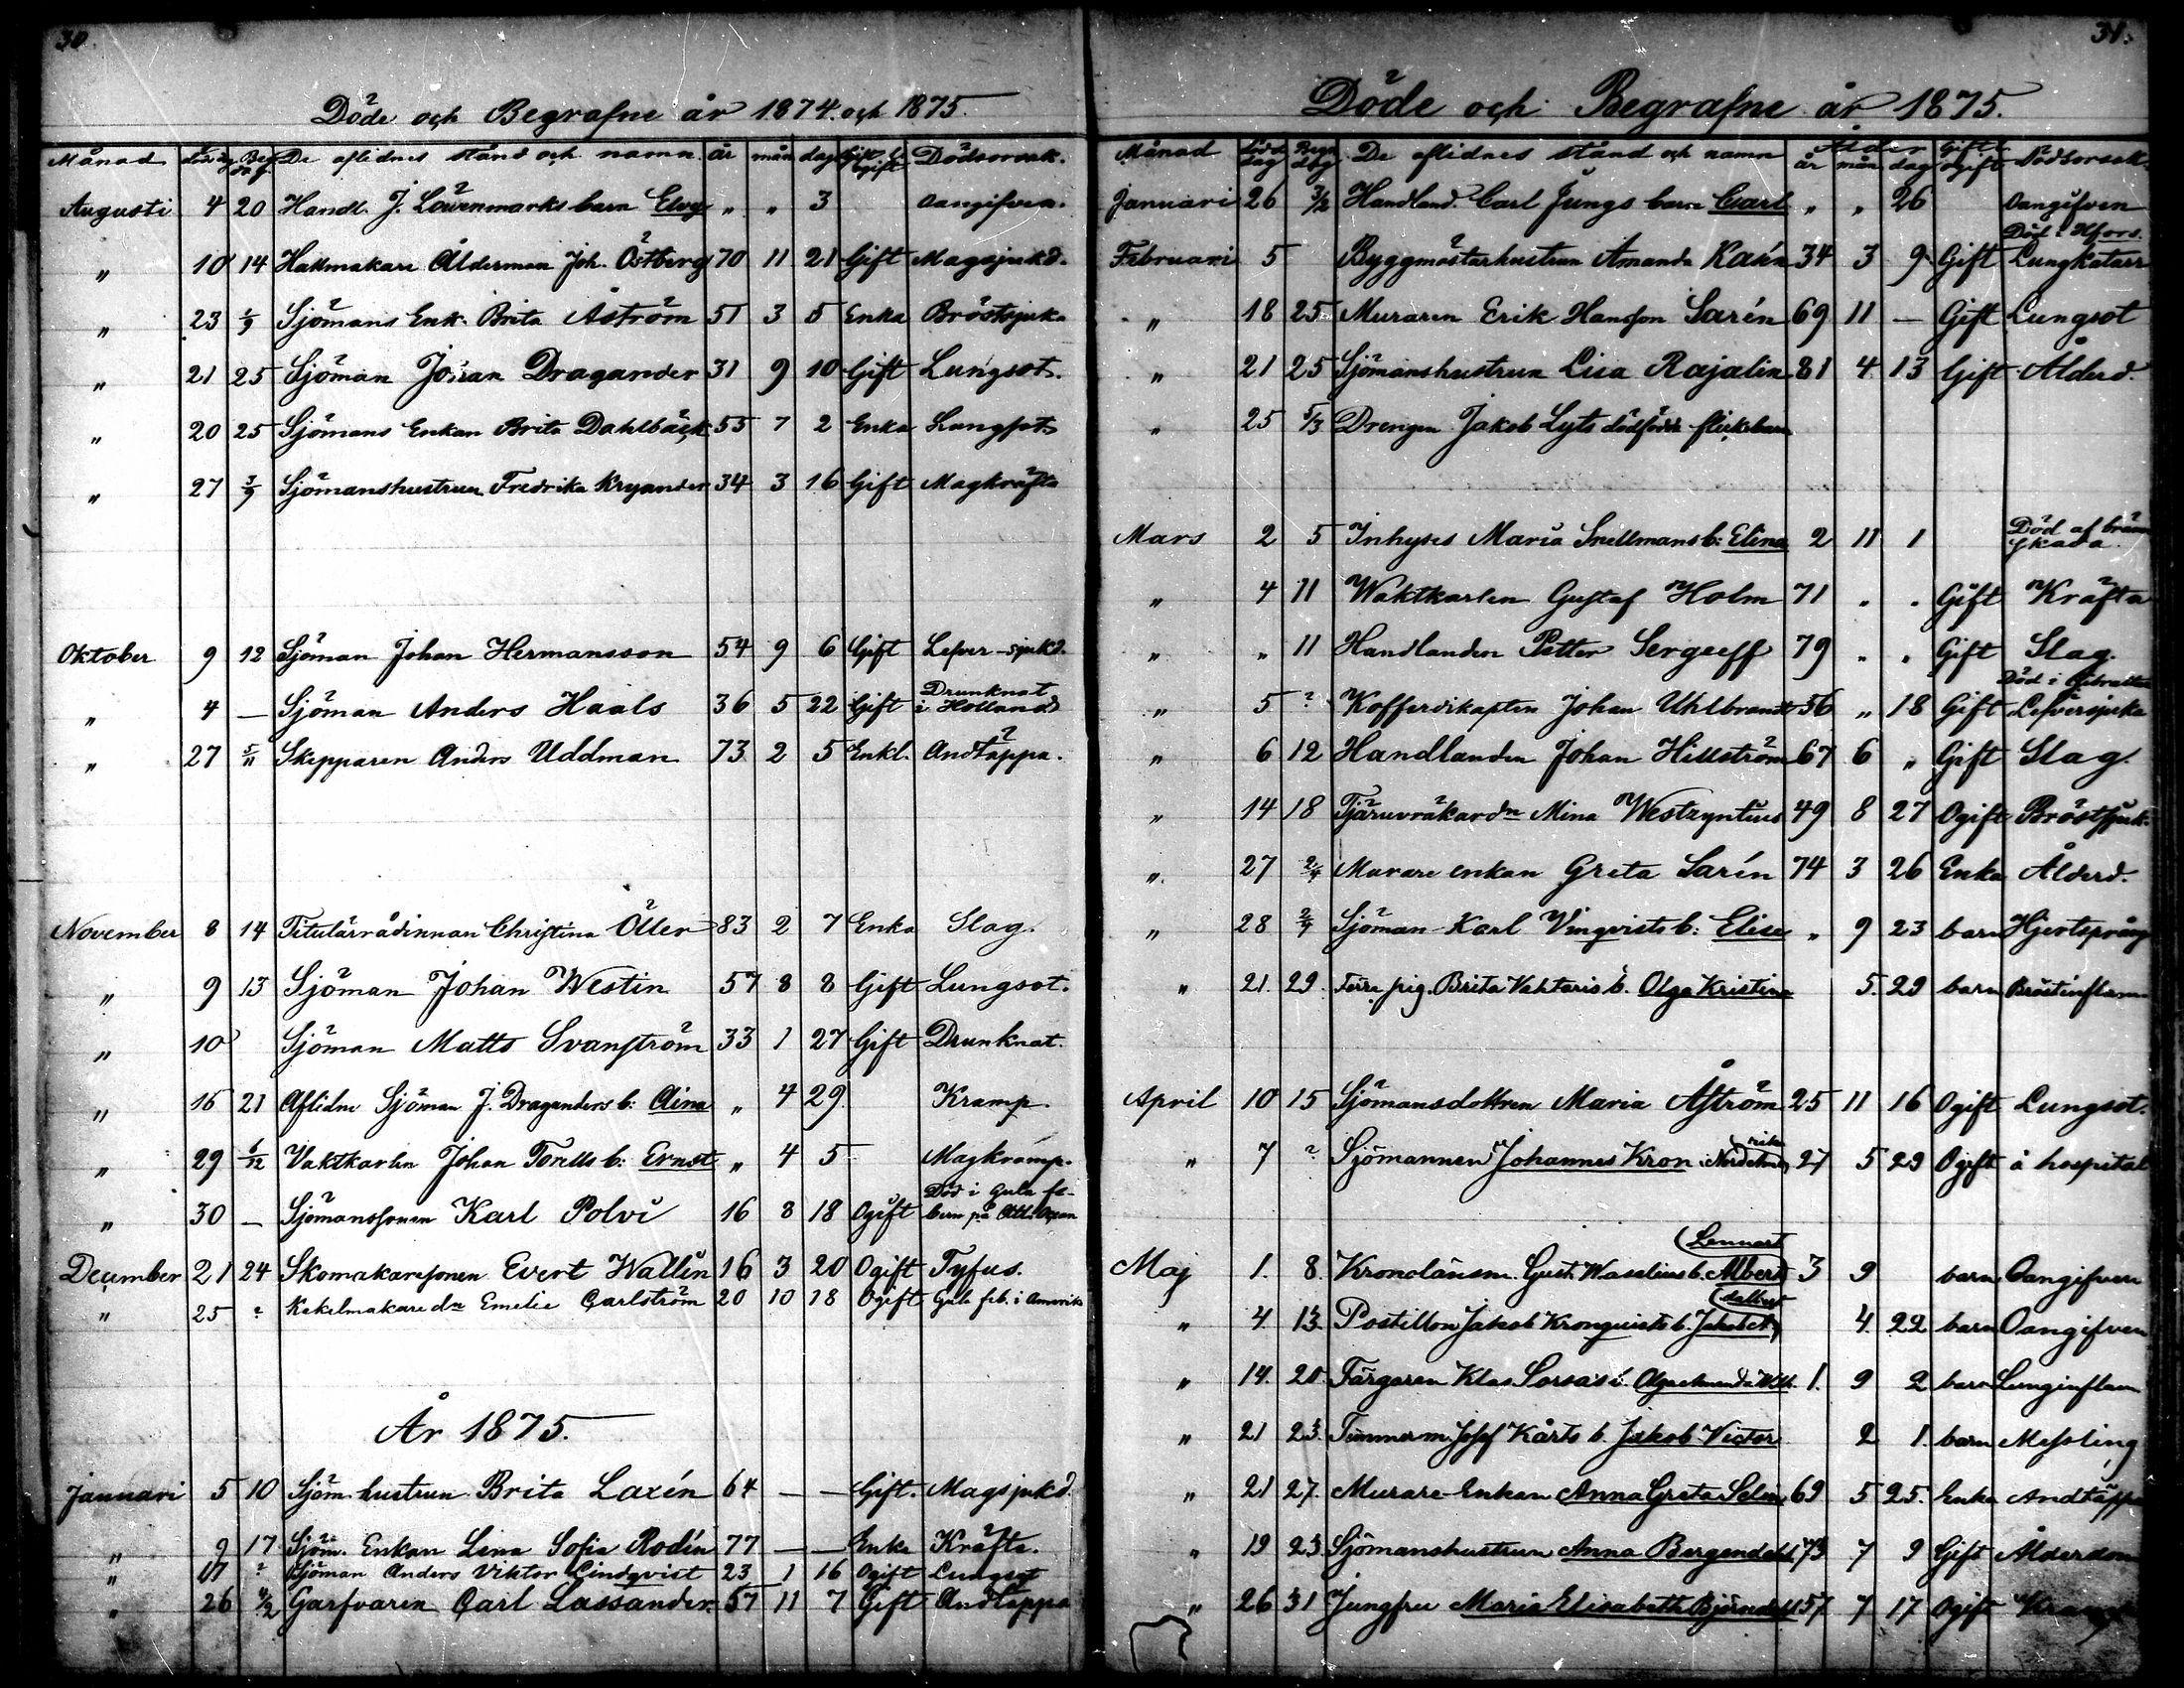 30.
Döde och Begrafne år 1874 och 1875.
Månad död dg Beg dag De aflidnes stånd och namn år mån dag Gift l. Ogift Dödsorsak.
Augusti 4 20 Handl. J. Löwenmarks barn Elvy " " 3 Oangifven.
" 10 14 Hattmakare Ålderman Joh. Östberg 70 11 21 Gift Magsjukd.
" 23 1/9 Sjömans Enk. Brita Åström 51 3 5 Enka Bröstsjuka
" 21 25 Sjöman Johan Dragander 31 9 10 Gift Lungsot.
" 20 25 Sjömans Enkan Brita Dahlbäck 55 7 2 Enka Lungsot.
" 27 3/9 Sjömanshustrun Fredrika Kryander 34 3 16 Gift Magkräfta
Oktober 9 12 Sjöman Johan Hermansson 54 9 6 Gift Lefver-sjukd.
" 4 — Sjöman Anders Haals 36 5 22 Gift Drunknat i Holland
" 27 5/11 Skepparen Anders Uddman 73 2 5 Enkl. Andtäppa.
November 8 14 Titulärrådinnan Christina Öller 83 2 7 Enka Slag.
" 9 13 Sjöman Johan Westin 57 8 8 Gift Lungsot.
" 10 Sjöman Matts Svanström 33 1 27 Gift Drunknat.
" 16 21 Aflidne Sjöman J. Draganders b: Aina " 4 29 Kramp.
" 29 6/12 Vaktkarlen Johan Torells b: Ernst " 4 5 Magkramp.
" 30 — Sjömanssonen Karl Polvi 16 8 18 Ogift Död i gula febern på Atl. Ocean
December 21 24 Skomakaresonen Evert Wallin 16 3 20 Ogift Tyfus.
" 25 ? Kakelmakare dn Emelie Carlström 20 10 18 Ogift Gula feb. i Amerik
År 1875.
Januari 5 10 Sjöm. hustrun Brita Laxén 64 — — Gift. Magsjukd.
" 9 17 Sjöm. Enkan Lena Sofia Rodin 77 — — Enka Kräfta.
" 17 ? Sjöman Anders Viktor Lindqvist 23 1 16 Ogift Lungsot
" 26 4/2 Garfvaren Carl Lassander. 57 11 7 Gift Andtäppa
31.
Döde och Begrafne år 1875.
Månad Död dag Begr dag De aflidnes stånd och namn Ålder år mån dag Gift l. ogift Dödsorsak
Januari 26 3/2 Handland. Carl Jungs barn Carl " " 26 Oangifven
Februari 5 Byggmästarhustrun Amanda Kasén 34 3 9 Gift Död i Hfors. Lungkatarr
" 18 25 Muraren Erik Hansson Sarén 69 11 — Gift Lungsot
" 21 25 Sjömanshustrun Lisa Rajalin 81 4 13 Gift Ålderd.
" 25 5/3 Drengen Jakob Lyts dödfödda flickebarn
Mars 2 5 Inhyses Maria Snellmans b: Elina 2 11 1 Död af bränskada.
" 4 11 Waktkarlen Gustaf Holm 71 " " Gift Kräfta
" " 11 Handlanden Petter Sergeeff 79 " " Gift Slag.
" 5 ? Kofferdikapten Johan Uhlbrandt 56 " 18 Gift Död i Gibraltar Lefversjuka
" 6 12 Handlanden Johan Hillström 67 6 " Gift Slag.
" 14 18 Tjäruvräkare dn Mina Westzyntius 49 8 27 Ogift Bröstsjuk.
" 27 2/4 Murare enkan Greta Sarén 74 3 26 Enka Ålderd.
" 28 2/4 Sjöman Karl Vinqvists b: Elise " 9 23 barn Hjertsprång
" 21 29. pig. Brita Vahtaris b. Olga Kristina 5. 29 barn Bröstinflam
April 10 15 Sjömansdottren Maria Åström 25 11 16 Ogift Lungsot.
" 7 ? Sjömannen Johannes Kron i Nordamerika 27 5 29 Ogift å hospital
Maj 1. 8. Kronolänsm. Gust. Wasslius b. Albert Lennart 3 9 barn Oangifven
" 4. 13. Postillon Jakob Kronqvists b. Jakob 4. 22 barn Oangifven
" 14. 20. Färgaren Klas Sorsas b. Olga 1. 9 2 barn Lunginflam
" 21 23. Timmerm. Josef Kårts b. Jakob Victor 2 1. barn Messling
" 21 27. Murare Enkan Anna Greta 69 5 25. Enka Andtäppa
" 19 23 Sjömanshustrun Anna Bergendahl 73 7 9 Gift Ålderdom
" 26 31 Jungfru Maria Elisabeth Björndahl 57 7 17 Ogift